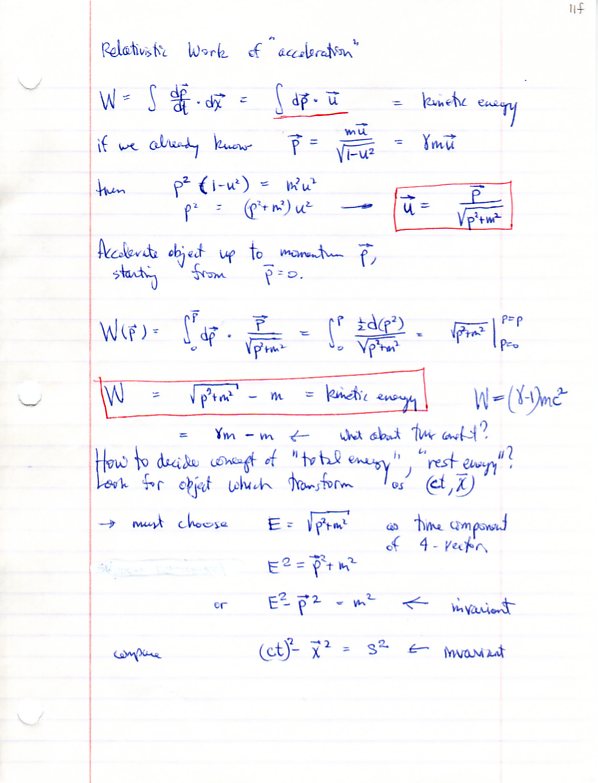 11f
Relativistic Work of "acceleration"
W = ∫ dp⃗/dt · dx⃗ = ∫ dp⃗ · u⃗ = kinetic energy
if we already know p⃗ = mu⃗/√(1-u²) = γmu⃗
then p² (1-u²) = m²u²
p² = (p²+m²)u² → u⃗ = p⃗/√(p²+m²)
Accelerate object up to momentum p⃗,
starting from p⃗=0.
W(p⃗) = ∫₀^p⃗ dp⃗ · p⃗/√(p²+m²) = ∫₀^p ½d(p²)/√(p²+m²) = √(p²+m²) |_{p=0}^{p=p}
W = √(p²+m²) - m = kinetic energy W=(γ-1)mc²
= γm - m ← what about this const?
How to decide concept of "total energy", "rest energy"?
Look for object which transform as (ct, x⃗)
→ must choose E = √(p²+m²) as time component
of 4-vector
E² = p⃗²+m²
or E²-p⃗² = m² ← invariant
compare (ct)²-x⃗² = s² ← invariant